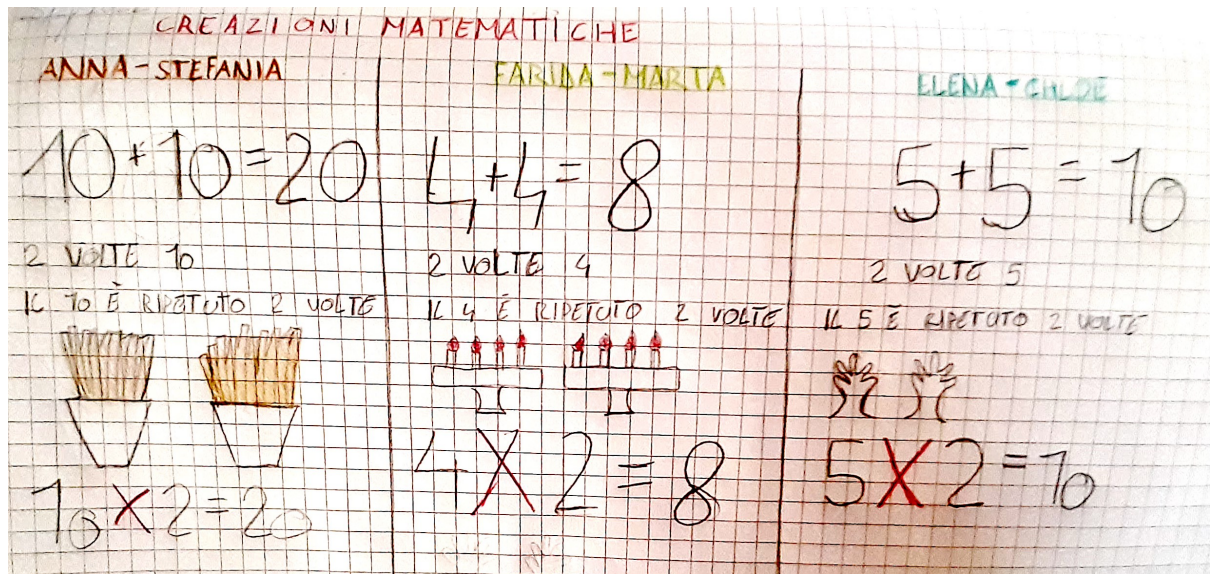 CREAZIONI MATEMATICHE
ANNA-STEFANIA
10+10=20
2 VOLTE 10
IL 10 È RIPETUTO 2 VOLTE
10X2=20
FARIDA-MARTA
4+4=8
2 VOLTE 4
IL 4 È RIPETUTO 2 VOLTE
4X2=8
ELENA-CHLOE
5+5=10
2 VOLTE 5
IL 5 È RIPETUTO 2 VOLTE
5X2=10